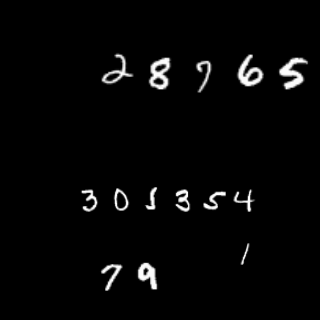 28765
305354
1
79